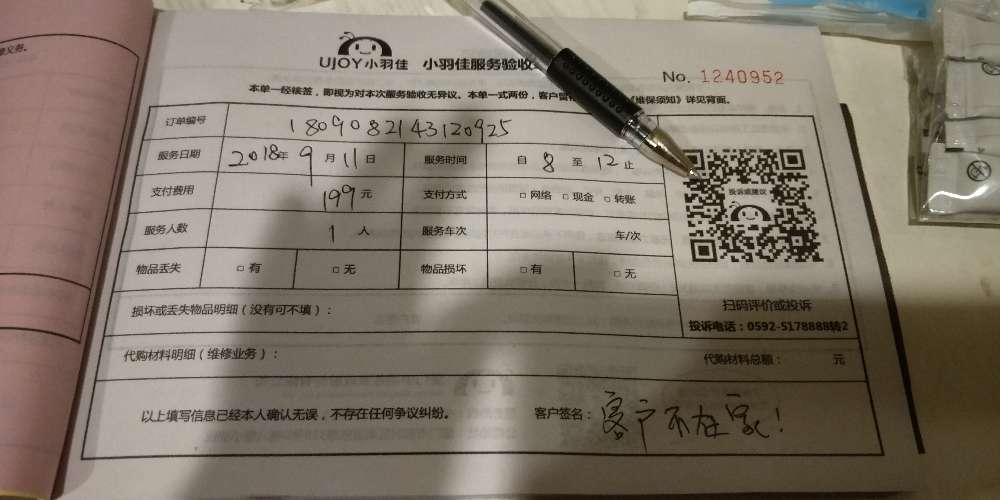 UJOY小羽佳 小羽佳服务验收
No. 1240952
本单一经续签，即视为对本次服务验收无异议。本单一式两份，客户留 《维保须知》详见背面。
订单编号 1809082143120925
服务日期 2018年9月11日 服务时间 自8至12止
支付费用 199元 支付方式 □网络 □现金 □转账
服务人数 1人 服务车次 车/次
物品丢失 □有 □无 物品损坏 □有 □无
投诉或建议
扫码评价或投诉
投诉电话：0592-5178888转2
损坏或丢失物品明细（没有可不填）：
代购材料明细（维修业务）： 代购材料总额： 元
以上填写信息已经本人确认无误，不存在任何争议纠纷。 客户签名：客户不在家！